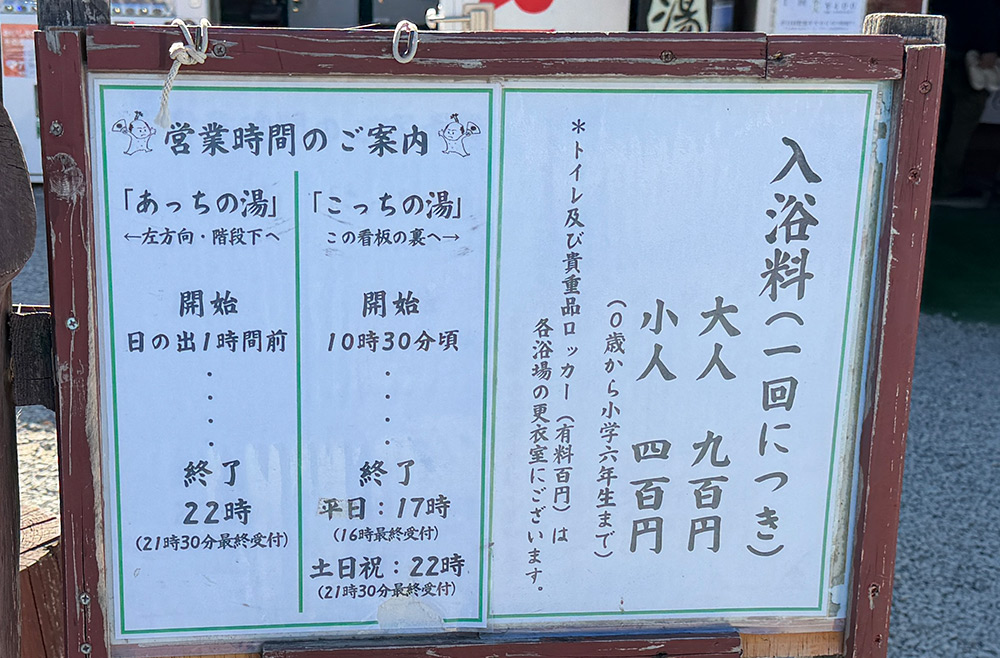 湯
営業時間のご案内
「あっちの湯」
←左方向・階段下へ
開始
日の出1時間前
・
・
・
・
終了
22時
(21時30分最終受付)
「こっちの湯」
この看板の裏へ→
開始
10時30分頃
・
・
・
・
終了
平日：17時
(16時最終受付)
土日祝：22時
(21時30分最終受付)
入浴料(一回につき)
大人 九百円
小人 四百円
(0歳から小学六年生まで)
＊トイレ及び貴重品ロッカー(有料百円)は
各浴場の更衣室にございます。